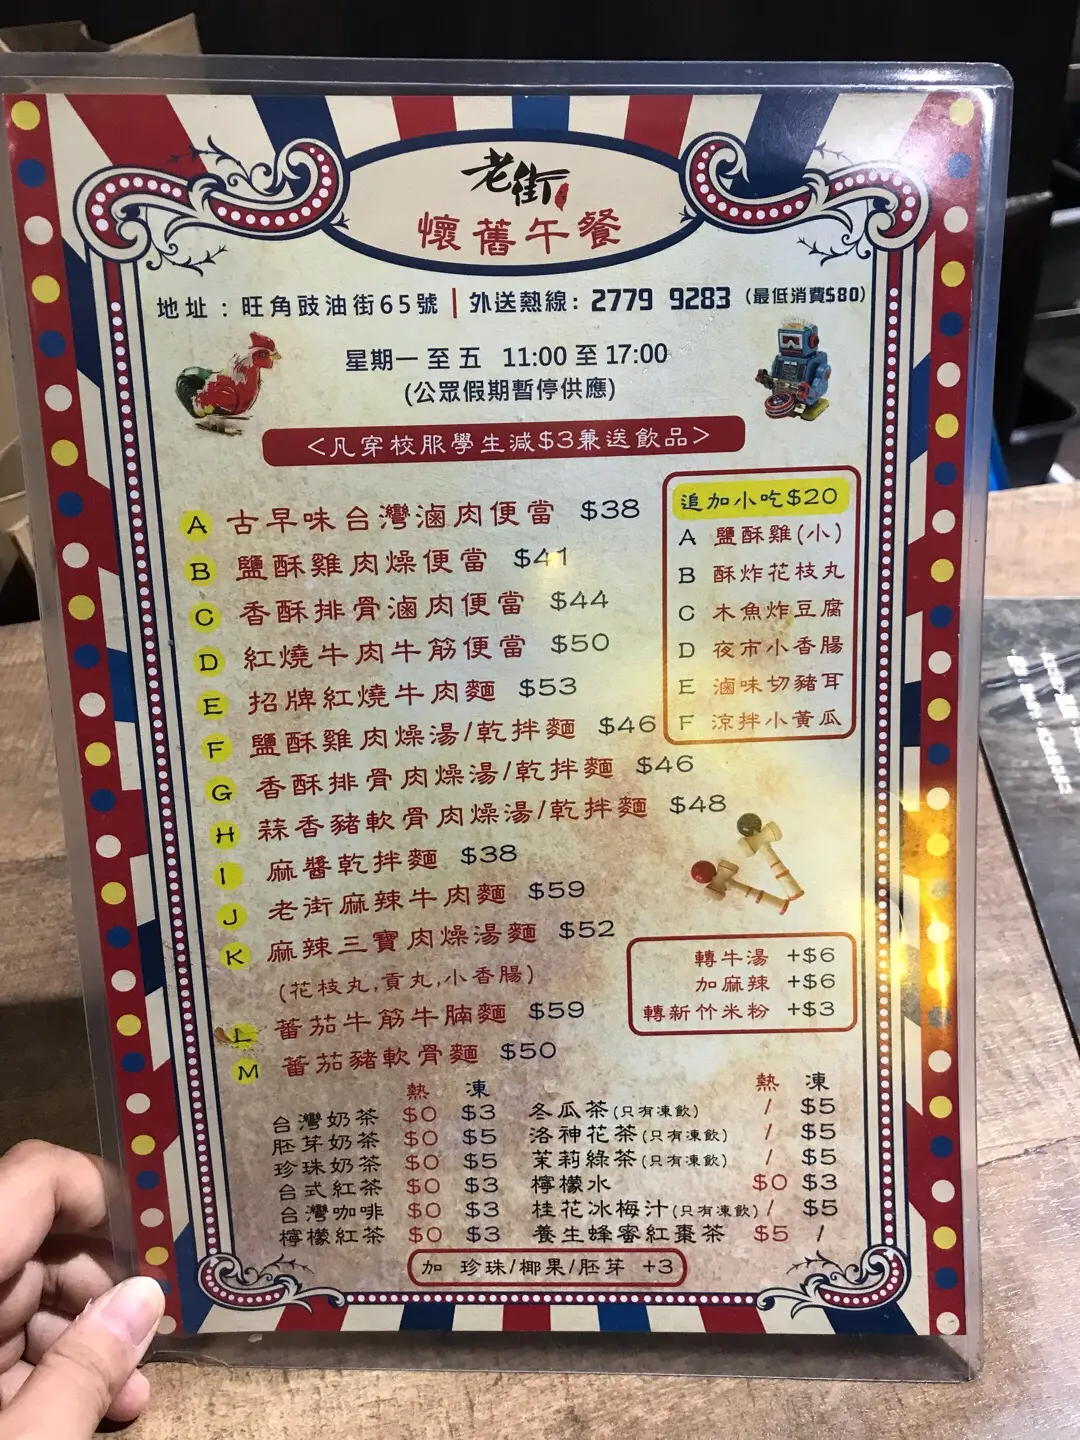 老街
懷舊午餐
地址：旺角豉油街65號 | 外送熱線：2779 9283 (最低消費$80)
星期一至五 11:00 至 17:00
(公眾假期暫停供應)
<凡穿校服學生減$3兼送飲品>
A 古早味台灣滷肉便當 $38
B 鹽酥雞肉燥便當 $41
C 香酥排骨滷肉便當 $44
D 紅燒牛肉牛筋便當 $50
E 招牌紅燒牛肉麵 $53
F 鹽酥雞肉燥湯/乾拌麵 $46
G 香酥排骨肉燥湯/乾拌麵 $46
H 蒜香豬軟骨肉燥湯/乾拌麵 $48
I 麻醬乾拌麵 $38
J 老街麻辣牛肉麵 $59
K 麻辣三寶肉燥湯麵 $52
(花枝丸,貢丸,小香腸)
L 蕃茄牛筋牛腩麵 $59
M 蕃茄豬軟骨麵 $50
追加小吃$20
A 鹽酥雞(小)
B 酥炸花枝丸
C 木魚炸豆腐
D 夜市小香腸
E 滷味切豬耳
F 涼拌小黃瓜
轉牛湯 +$6
加麻辣 +$6
轉新竹米粉 +$3
熱 凍
台灣奶茶 $0 $3
胚芽奶茶 $0 $5
珍珠奶茶 $0 $5
台式紅茶 $0 $3
台灣咖啡 $0 $3
檸檬紅茶 $0 $3
熱 凍
冬瓜茶(只有凍飲) / $5
洛神花茶(只有凍飲) / $5
茉莉綠茶(只有凍飲) / $5
檸檬水 $0 $3
桂花冰梅汁(只有凍飲) / $5
養生蜂蜜紅棗茶 $5 /
加 珍珠/椰果/胚芽 +3